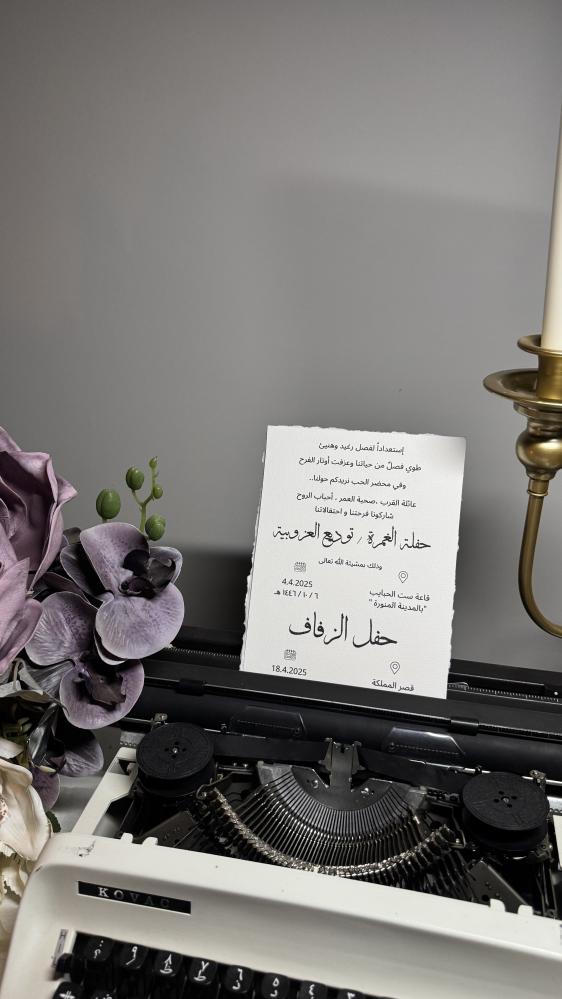 إستعداداً لفصل رغيد وهنيئ
طوي فصلٌ من حياتنا وعزفت أوتار الفرح
وفي محضر الحب نريدكم حولنا..
عائلة القرب ،صحبة العمر ، أحباب الروح
شاركونا فرحتنا و احتفالاتنا
حفلة الغمرة / توديع العزوبية
وذلك بمشيئة الله تعالى
قاعة ست الحبايب
"بالمدينة المنورة"
4.4.2025
٦ / ١٠ / ١٤٤٦ هـ
حفل الزفاف
قصر المملكة
18.4.2025
KOVAC